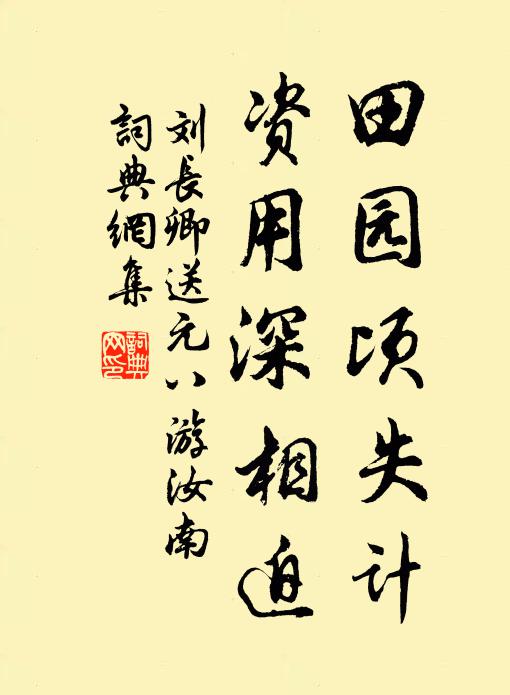 田园顷失计
资用深相迫
刘長卿送元八游汝南
詞典網集
詞典網印